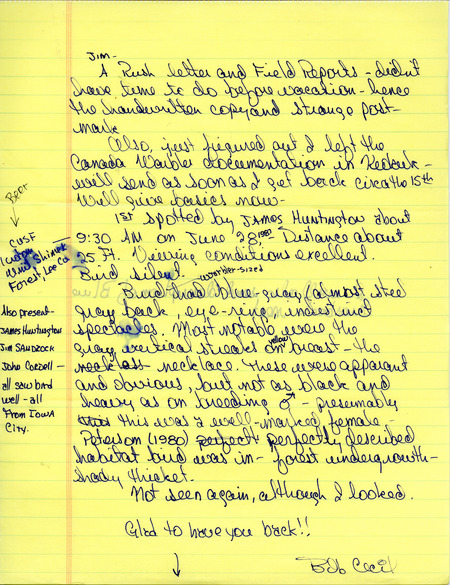 Jim-
A Rush letter and Field Reports - didn't
have time to do before vacation - hence
the handwritten copy and strange post-
mark
Also, just figured out I left the
Canada Warbler documentation in Keokuk -
will send as soon as I get back circa the 15th
Will give basics now -
1st spotted by JAMES HUNTINGTON about
9:30 AM on June 28, 1987 - Distance about
25 Ft. Viewing conditions excellent.
Bird silent. warbler-sized
Bird had blue gray, almost steel
gray back, eye-ring, indistinct
spectacles. Most notable were the
gray vertical streaks on yellow breast - the
necklace. These were apparent
and obvious, but not as black and
heavy as on breeding ♂ - presumably
this was a well-marked female -
Peterson (1980) perfectly described
habitat bird was in - forest undergrowth -
shady thicket.
Not seen again, although I looked.
Glad to have you back!!
Bob Cecil
BEEF
CUSF
Shimek
Forest Lee Co
Also present -
JAMES HUNTINGTON
JIM SANDROCK
John Cordell -
all saw bird
well - all
From IOWA
CITY.